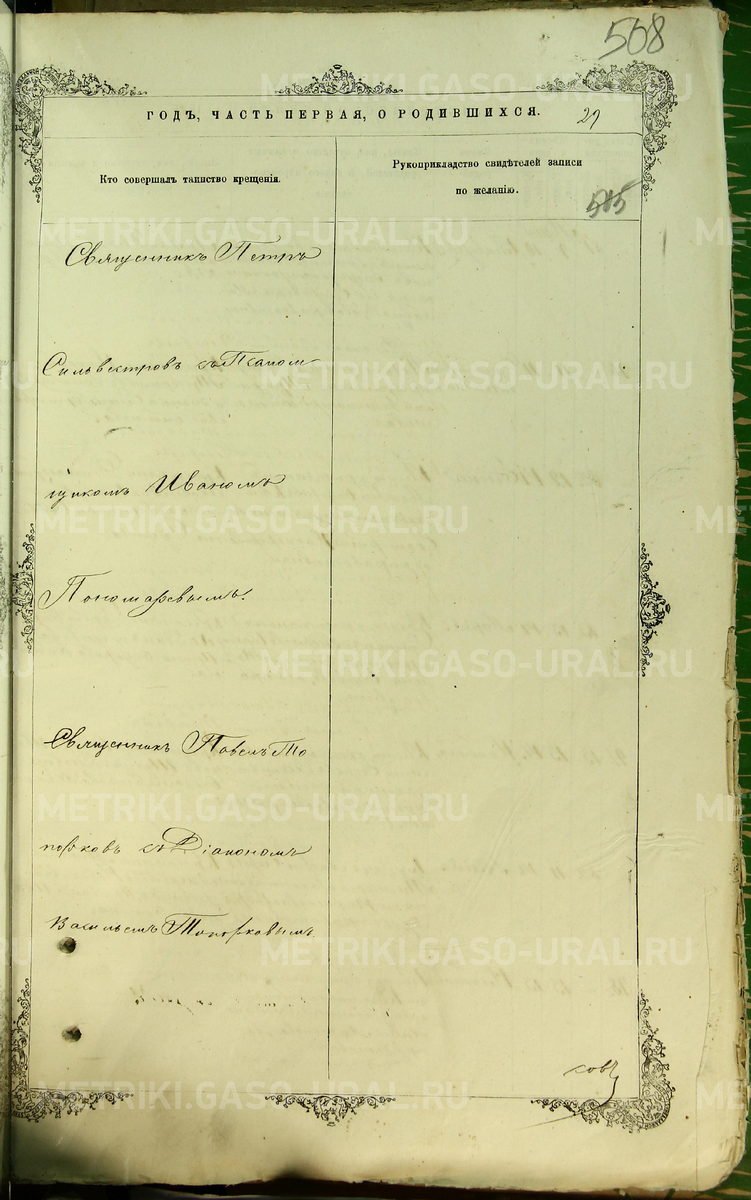 508
ГОДЪ, ЧАСТЬ ПЕРВАЯ, О РОДИВШИХСЯ.
29
Кто совершалъ таинство крещенія.
Рукоприкладство свидѣтелей записи
по желанію.
515
Священникъ Петръ
Сильвестровъ съ Псалом-
щикомъ Иваномъ
Пономаревымъ.
Священникъ Павелъ То
порковъ съ Діакономъ
Васильемъ Топорковымъ.
METRIKI.GASO-URAL.RU